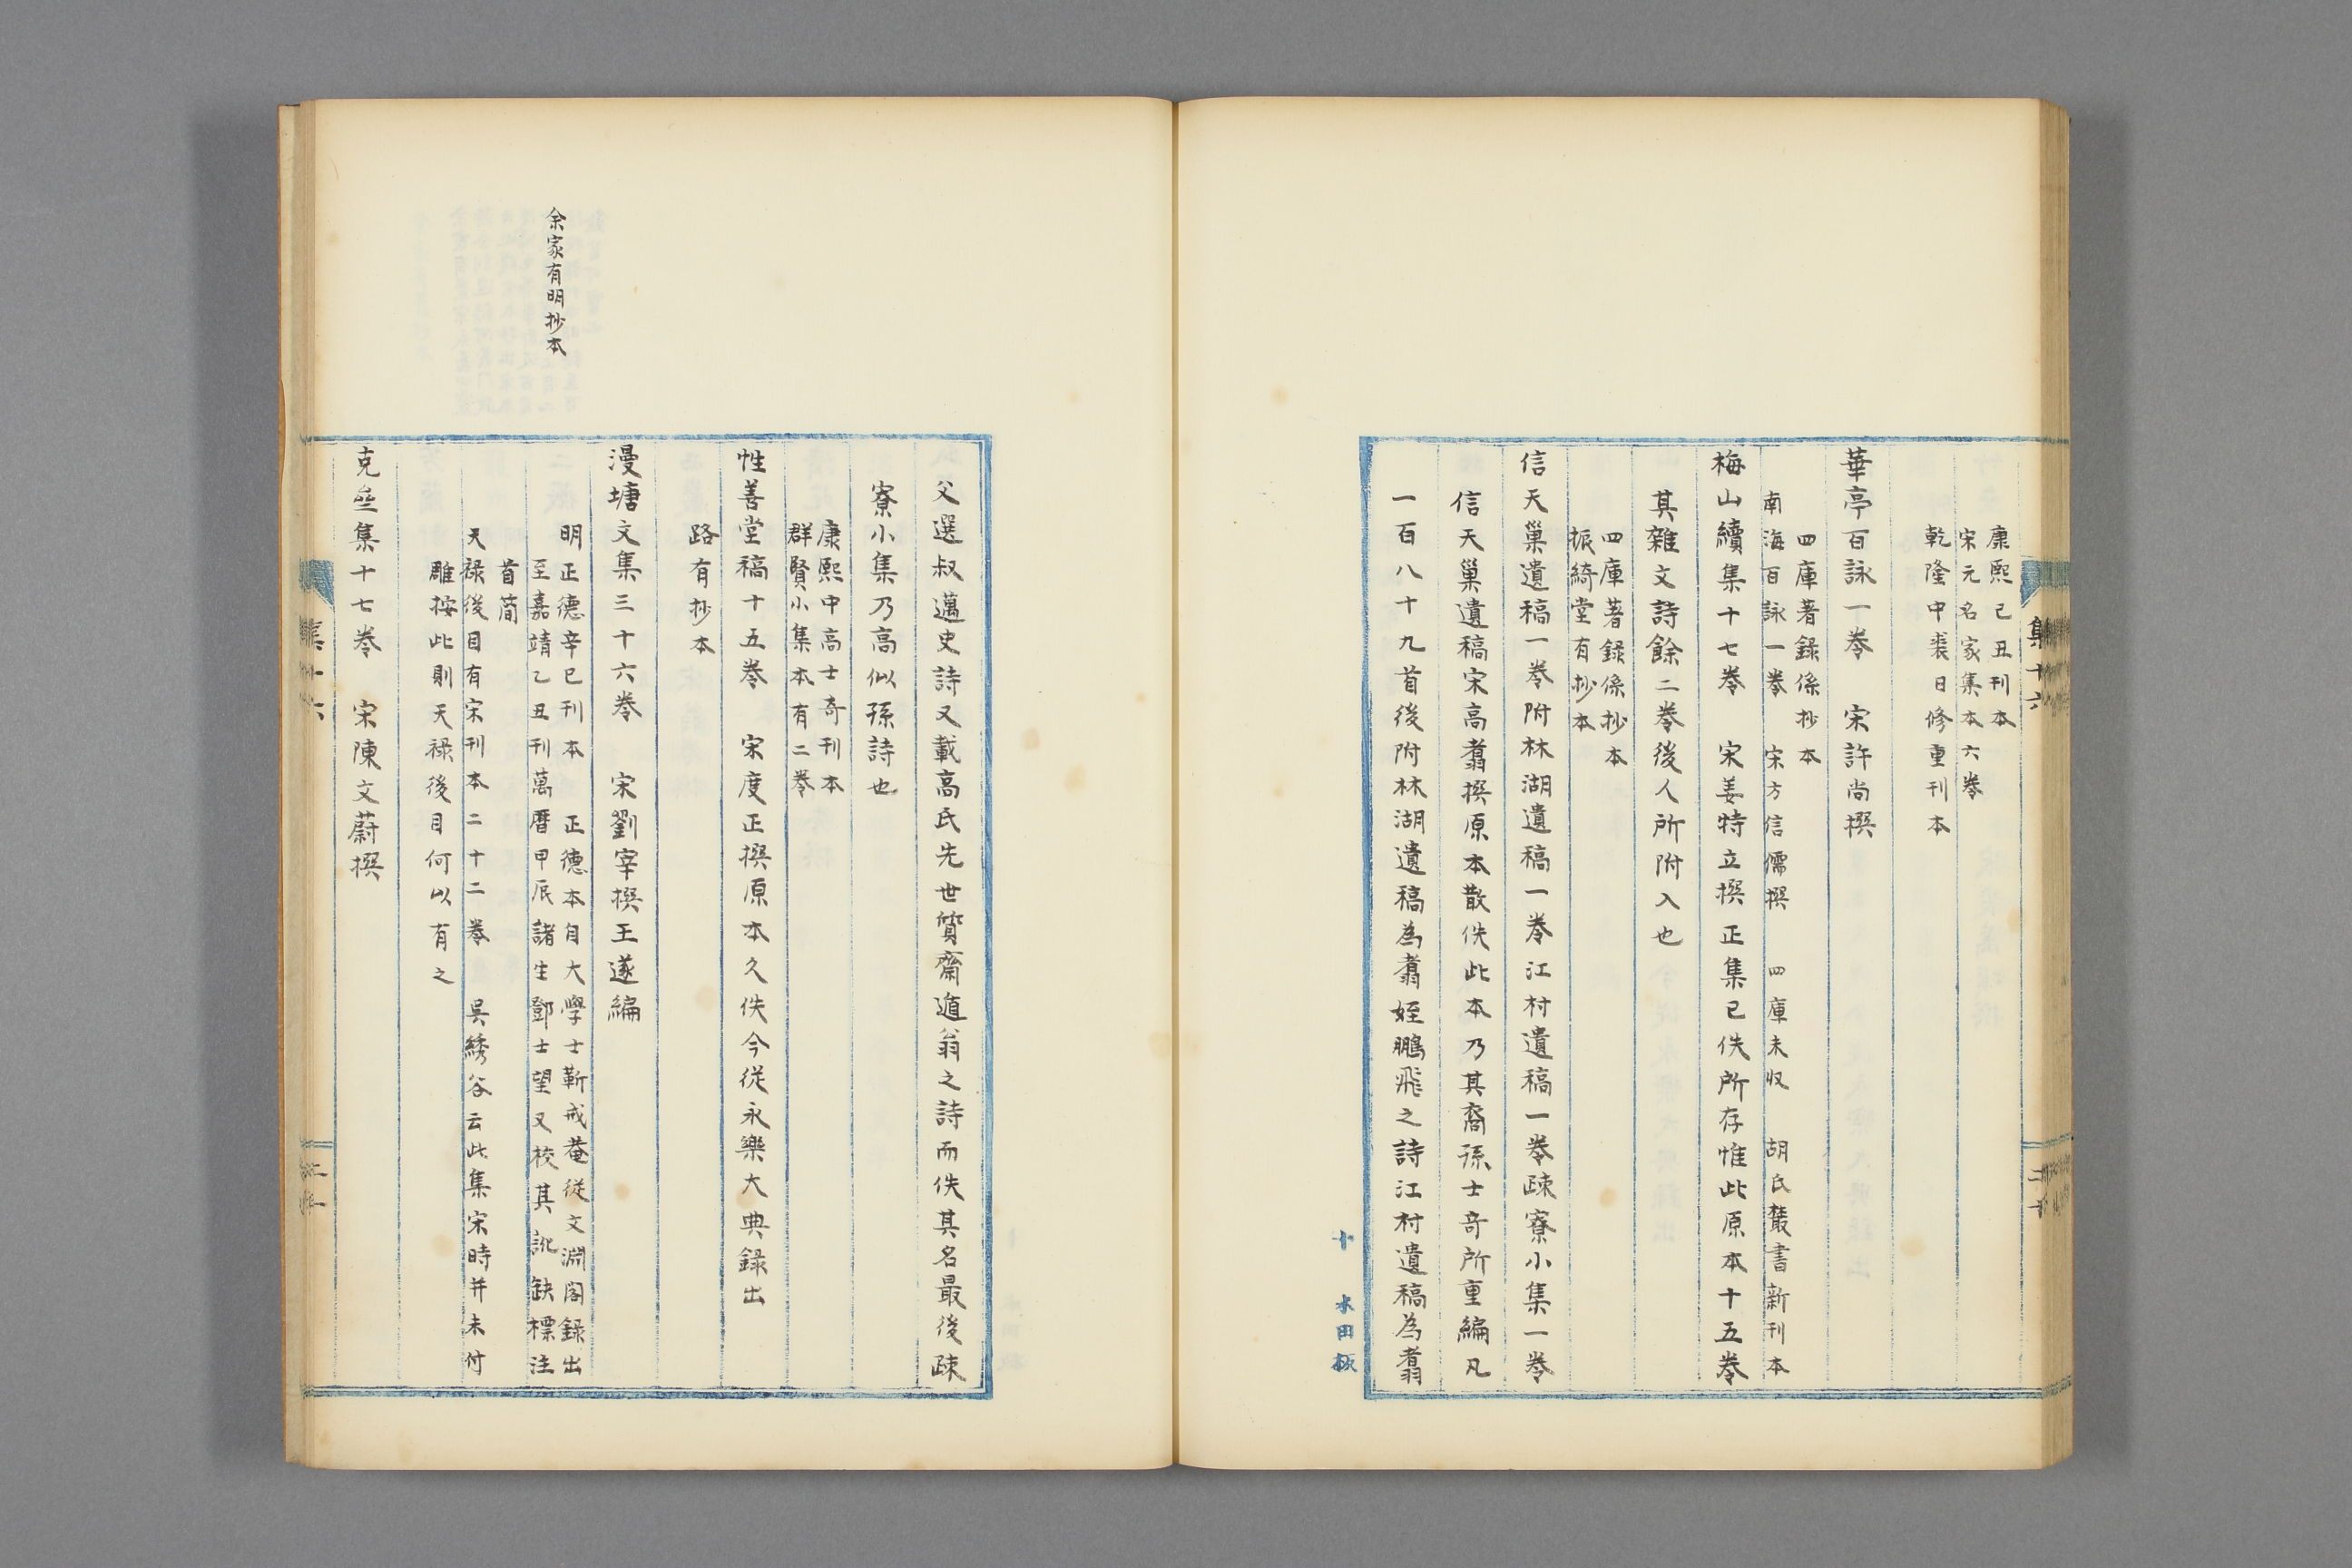 康熙己丑刊本
宋元名家集本六卷
乾隆中裘日修重刊本
華亭百詠一卷　宋許尚撰
四庫著錄係抄本
南海百詠一卷　宋方信儒撰　四庫未收　胡氏叢書新刊本
梅山續集十七卷　宋姜特立撰正集已佚所存惟此原本十五卷
其雜文詩餘二卷後人所附入也
四庫著錄係抄本
振綺堂有抄本
信天巢遺稿一卷附林湖遺稿一卷江村遺稿一卷疎寮小集一卷
信天巢遺稿宋高翥撰原本散佚此本乃其裔孫士奇所重編凡
一百八十九首後附林湖遺稿為翥姪鵬飛之詩江村遺稿為翥
集十六
二十
十　水田板
父選叔邁史詩又載高氏先世質齋遁翁之詩而佚其名最後疎
寮小集乃高似孫詩也
康熙中高士奇刊本
群賢小集本有二卷
性善堂稿十五卷　宋度正撰原本久佚今從永樂大典錄出
路有抄本
漫塘文集三十六卷　宋劉宰撰王遂編
余家有明抄本
明正德辛巳刊本　正德本自大學士靳戒菴從文淵閣錄出
至嘉靖乙丑刊萬曆甲辰諸生鄧士望又校其訛缺標注
首簡
天祿後目有宋刊本二十二卷　吳綉谷云此集宋時并未付
雕按此則天祿後目何以有之
克齋集十七卷　宋陳文蔚撰
集十六